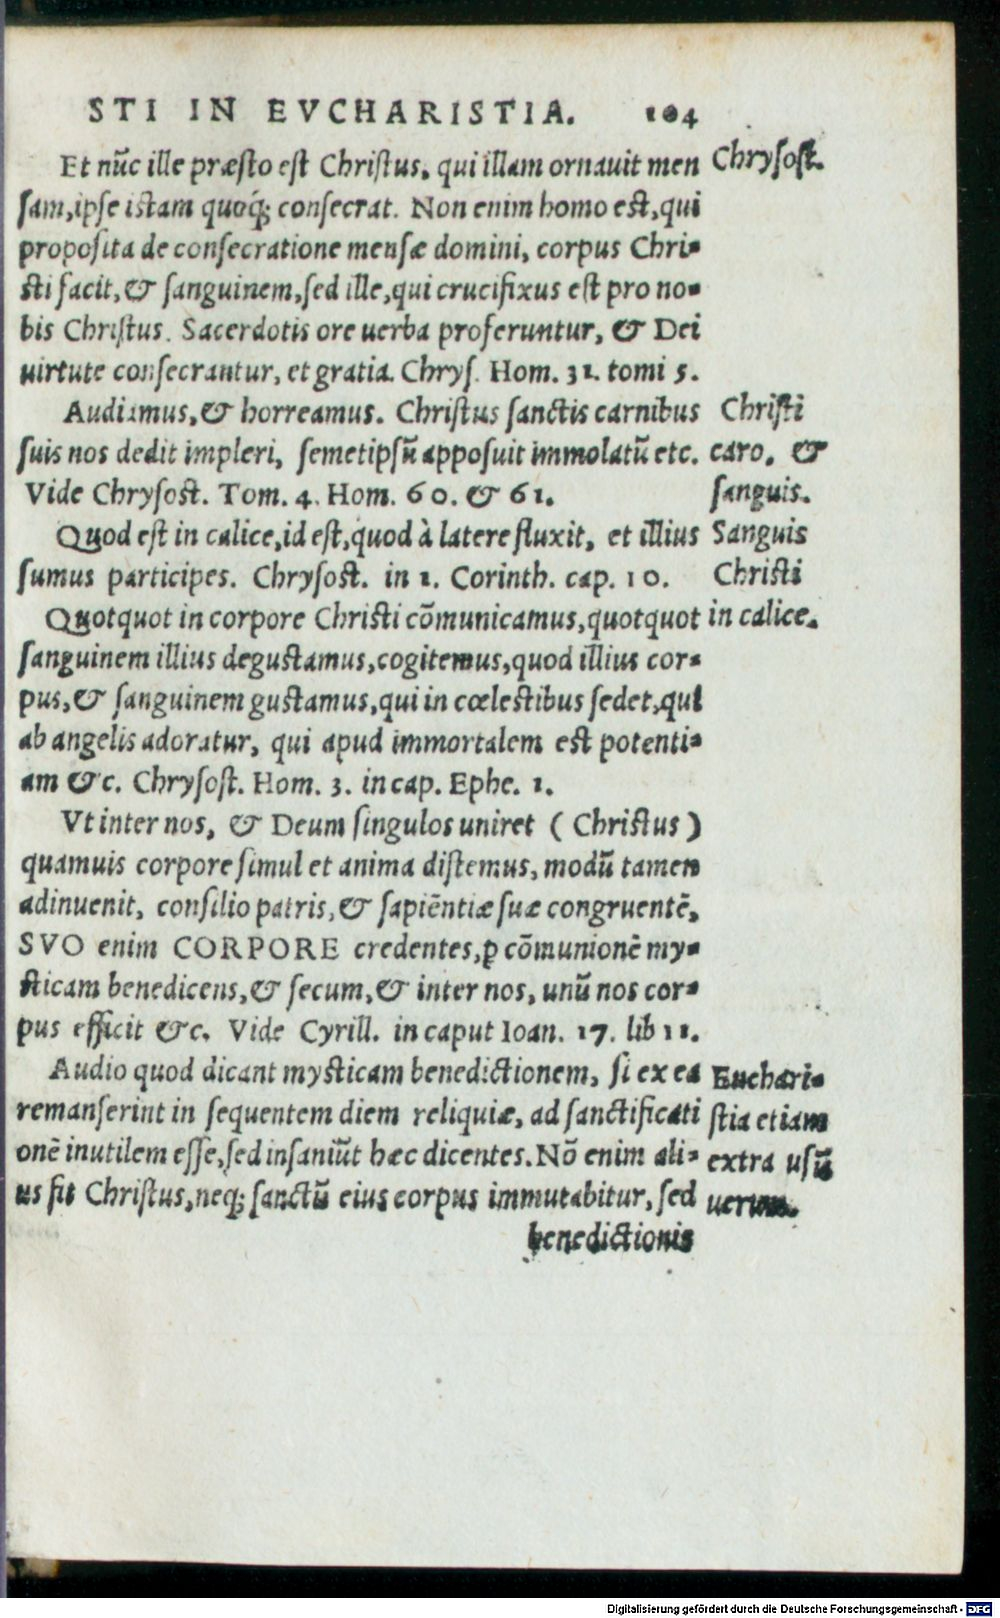 STI IN EVCHARISTIA. 104
Et nũc ille præsto est Christus, qui illam ornauit men
sam, ipse istam quoq; consecrat. Non enim homo est, qui
proposita de consecratione mensæ domini, corpus Chri-
sti facit, & sanguinem, sed ille, qui crucifixus est pro no-
bis Christus. Sacerdotis ore uerba proferuntur, & Dei
uirtute consecrantur, et gratia. Chrys. Hom. 31. tomi 5.
Chrysost.
Audiamus, & horreamus. Christus sanctis carnibus
suis nos dedit impleri, semetipsũ apposuit immolatũ etc.
Vide Chrysost. Tom. 4. Hom. 60. & 61.
Christi
caro. &
sanguis.
Quod est in calice, id est, quod à latere fluxit, et illius
sumus participes. Chrysost. in 1. Corinth. cap. 10.
Sanguis
Christi
in calice.
Quotquot in corpore Christi cõmunicamus, quotquot
sanguinem illius degustamus, cogitemus, quod illius cor-
pus, & sanguinem gustamus, qui in cœlestibus sedet, qui
ab angelis adoratur, qui apud immortalem est potenti-
am &c. Chrysost. Hom. 3. in cap. Ephe. 1.
Vt inter nos, & Deum singulos uniret ( Christus )
quamuis corpore simul et anima distemus, modũ tamen
adinuenit, consilio patris, & sapiẽntiæ suæ congruentẽ,
SVO enim CORPORE credentes, ꝑ cõmunionẽ my-
sticam benedicens, & secum, & inter nos, unũ nos cor-
pus efficit &c. Vide Cyrill. in caput Ioan. 17. lib 11.
Audio quod dicant mysticam benedictionem, si ex ea
remanserint in sequentem diem reliquiæ, ad sanctificati
onẽ inutilem esse, sed insaniũt hæc dicentes. Nõ enim ali-
us fit Christus, neq; sanctũ eius corpus immutabitur, sed
Euchari-
stia etiam
extra usũ
uerum.
benedictionis
Digitalisierung gefördert durch die Deutsche Forschungsgemeinschaft - DFG